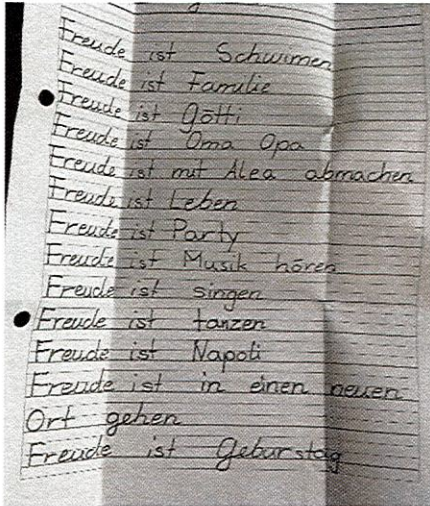 Freude ist Schwimen
Freude ist Familie
Freude ist Götti
Freude ist Oma Opa
Freude ist mit Alea abmachen
Freude ist Leben
Freude ist Party
Freude ist Musik hören
Freude ist singen
Freude ist tanzen
Freude ist Napoli
Freude ist in einen neuen
Ort gehen
Freude ist Geburstag